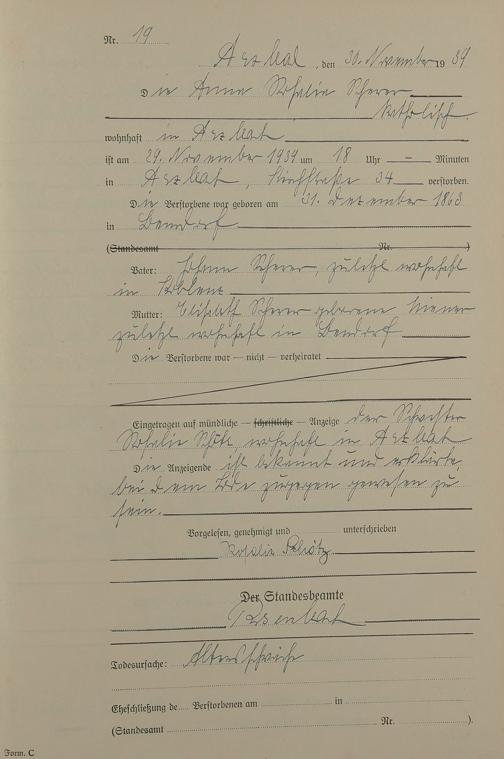 Nr. 19
Arzbat, den 30. November 1939
Die Anna Rosalia Scherer
katholisch
wohnhaft in Arzbat
ist am 29. November 1939 um 18 Uhr — Minuten
in Arzbat, Kirchstraße 34 verstorben.
Die Verstorbene war geboren am 31. Dezember 1863
in Bendorf
(Standesamt Nr. )
Vater: Johann Scherer, zuletzt wohnhaft
in Koblenz
Mutter: Elisabeth Scherer geborene
zuletzt wohnhaft in Bendorf
Die Verstorbene war — nicht — verheiratet
Eingetragen auf mündliche — schriftliche — Anzeige der
Rosalia Schütz wohnhaft in Arzbat
Die Anzeigende ist bekannt und erklärte,
bei dem Tode zugegen gewesen zu
sein.
Vorgelesen, genehmigt und unterschrieben
Rosalia Schütz
Der Standesbeamte
Todesursache: Altersschwäche
Eheschließung de Verstorbenen am in
(Standesamt Nr. ).
Form. C